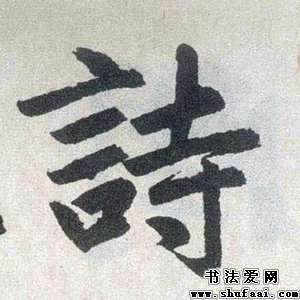 詩
书法爱网
www.shufaai.com